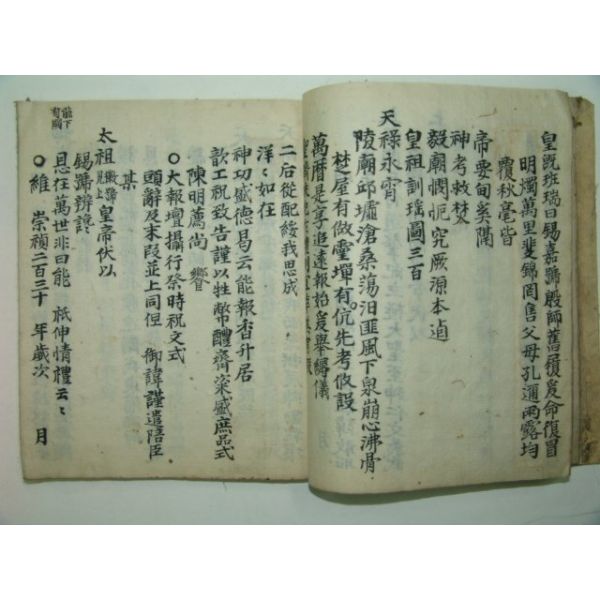 皇旣班瑞曰錫嘉號殷師舊履爰命復冒
明燭萬里斐錦罔售父母孔邇雨露均
覆秋毫皆
帝要甸奚閒
神考救焚
毅廟憫扼究厥源本逌
皇祖訓瑤圖三百
天祿永宵
陵廟邱墟滄桑蕩汨匪風下泉崩心沸骨
楚屋有做雩墠有伉先考攸設
萬曆是享追遠報始爰擧縟儀
二后從配綏我思成
洋〻如在
神功盛德曷云能報杳升居
歆工祝致告謹以牲幣醴齊粢盛庶品式
陳明薦尚 饗
○大報壇攝行祭時祝文式
頭辭及末段並上同但 御諱謹遣陪臣
某
太祖徽號見上皇帝伏以
錫號辨諡
恩在萬世非曰能 祗伸情禮云〻
○維 崇禎二百三十 年歲次 月